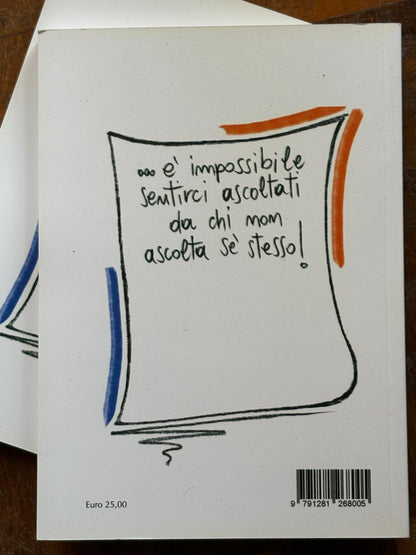 ... è impossibile
sentirci ascoltati
da chi non
ascolta sè stesso!
Euro 25,00
9 791281 268005